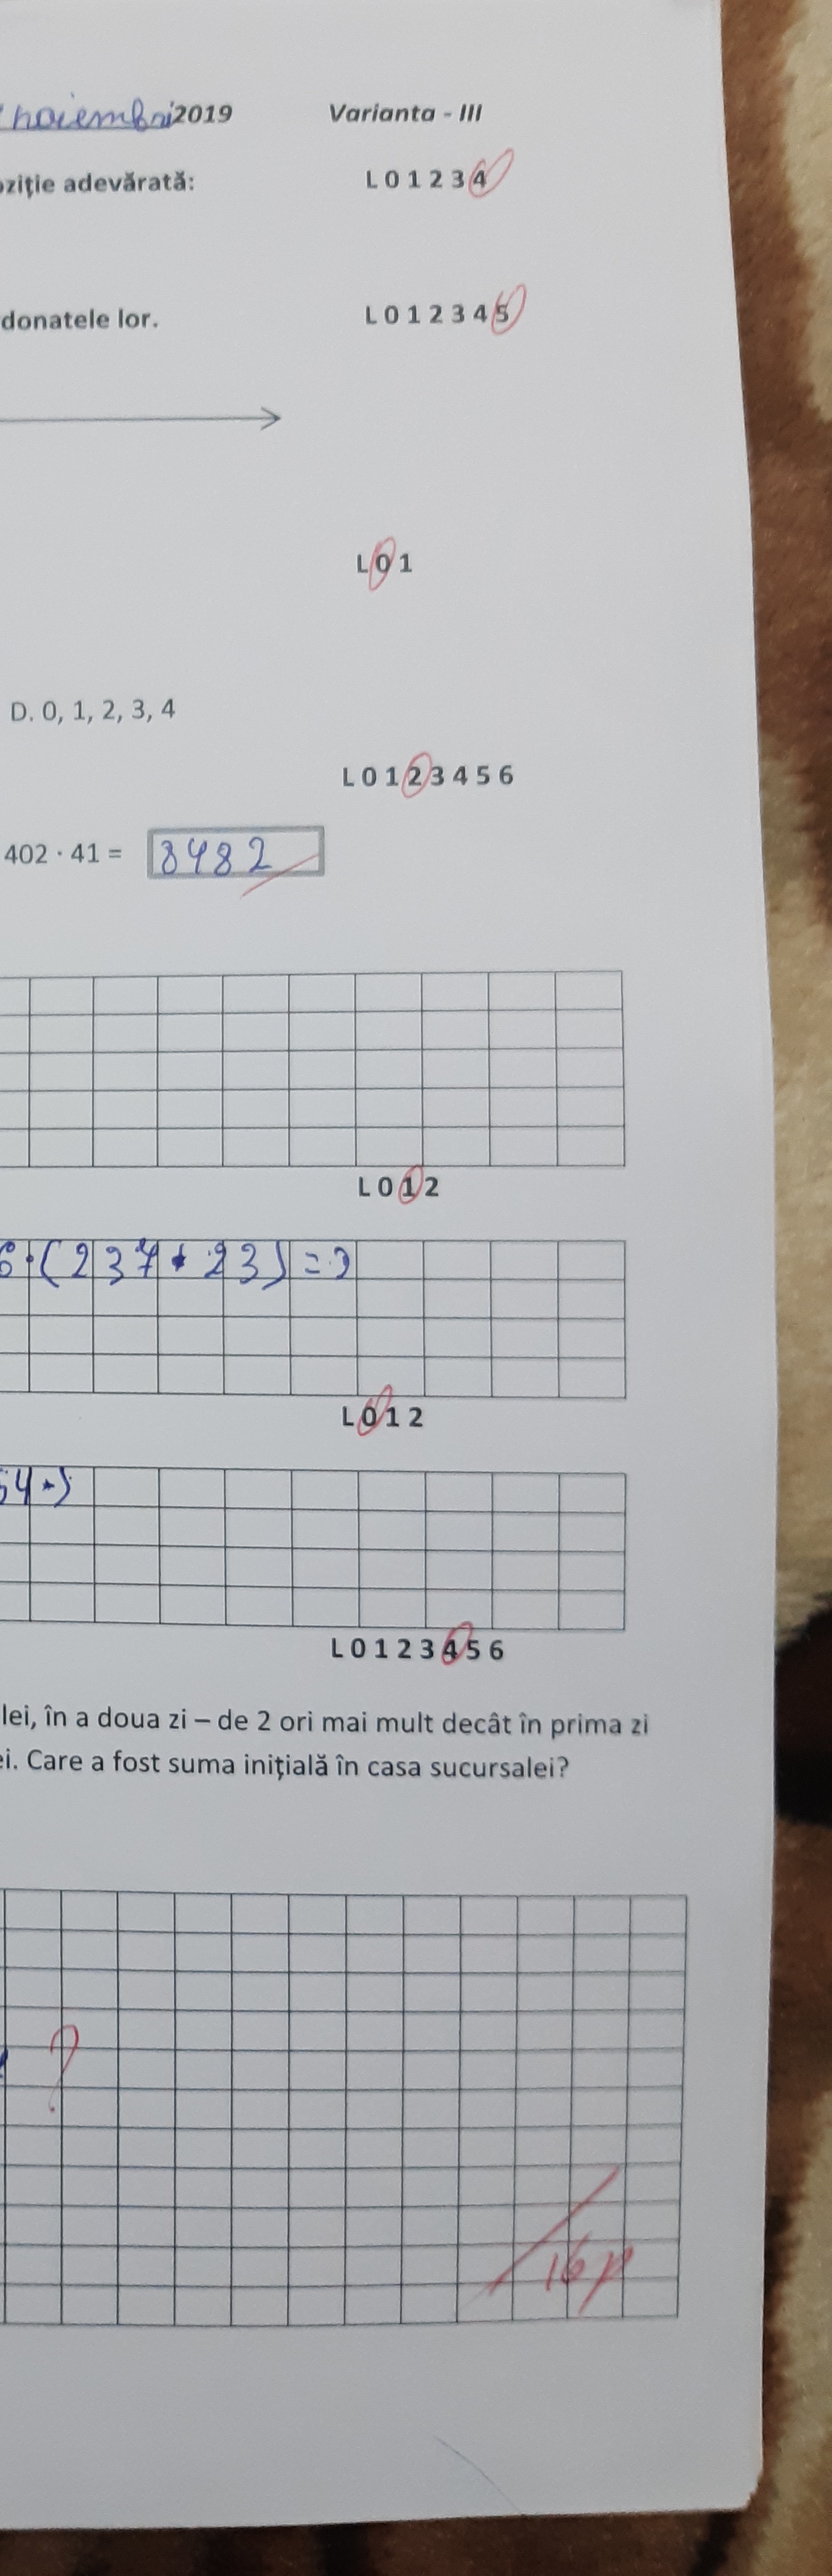 noiembri 2019 Varianta - III
oziție adevărată: L 0 1 2 3 4
donatele lor. L 0 1 2 3 4 5
L 0 1
D. 0, 1, 2, 3, 4
L 0 1 2 3 4 5 6
402 · 41 = 8482
L 0 1 2
6·(237+23)=?
L 0 1 2
L 0 1 2 3 4 5 6
lei, în a doua zi – de 2 ori mai mult decât în prima zi
ei. Care a fost suma inițială în casa sucursalei?
?
16 p